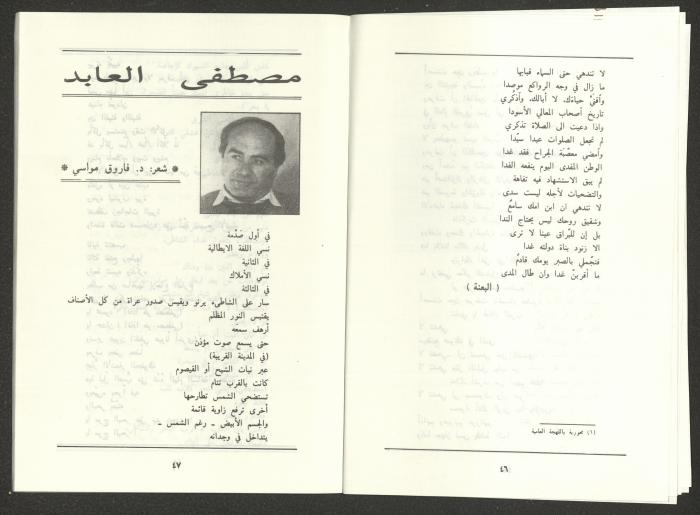 لا تندهي حتى السماء قبابها
ما زال في وجه الرواكع موصدا
وأفنيْ حياءك، لا أبالك، وأذكُري
تاريخ أصحاب المعالي الأسودا
واذا دعيت الى الصلاة تذكري
لم تجعل الصلوات عبدا سيّدا
وأمضي معصّبة الجراح فقد غدا
الوطن المفدى اليوم ينفعه الفدا
لم يبق الاستشهاد فيه تفاهة
والتضحيات لأجله ليست سدى
لا تندهي ان ابن امك سامعٌ
وشقيق روحك ليس يحتاج الندا
بل إن للبُراق عينا لا ترى
الا زنود بناة دولته غدا
فتجملي بالصبر يومك قادمٌ
ما أقربنّ غدا وان طال المدى
( البعنة )
(١) محورية باللهجة العامية
٤٦
مصطفى العابد
* شعر: د. فاروق مواسي *
في أول صَدْمة
نسي اللغة الايطالية
في الثانية
نسي الأملاك
في الثالثة
سار على الشاطىء يرنو ويقيس صدور عراة من كل الأصناف
يقتبس النور المظلم
أرهف سمعَه
حتى يسمع صوت مؤذن
(في المدينة القريبة)
عبر نبات الشيح أو القيصوم
كانت بالقرب تنام
تستضحي الشمس تطارحها
أخرى ترفع زاوية قائمة
والجسم الأبيض ـ رغم الشمس ـ
يتداخل في وجدانه
٤٧